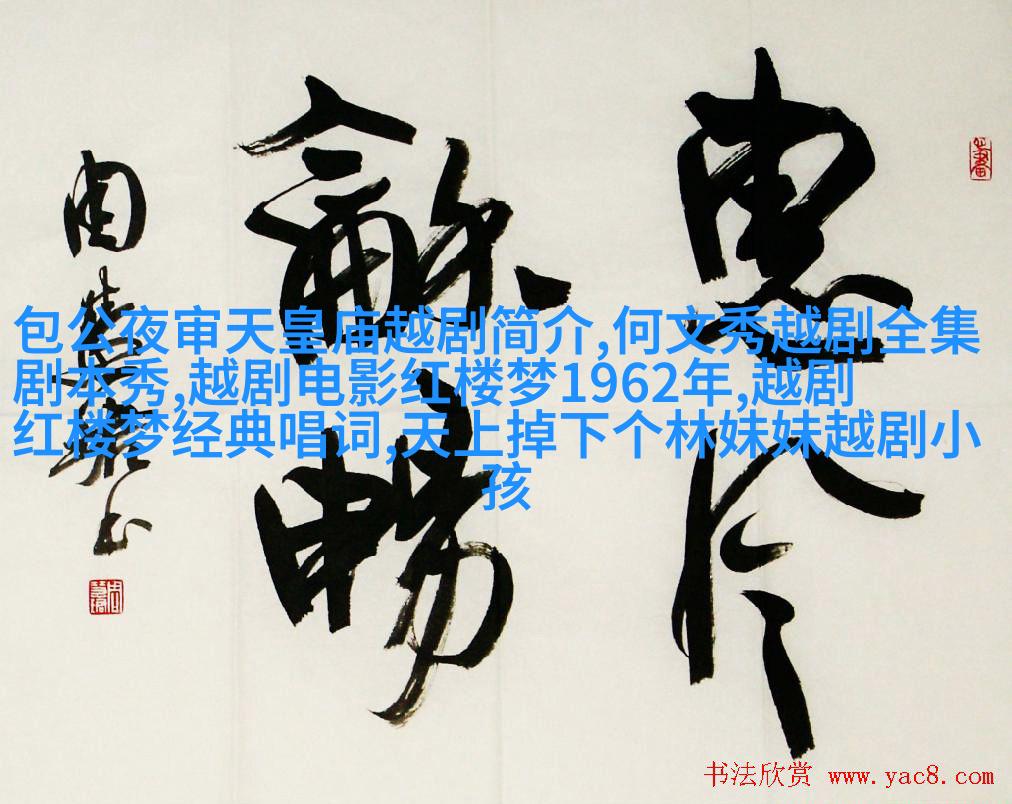 惠風
龢暢
周 书
包公夜审天皇庙越剧简介,何文秀越剧全集
剧本秀,越剧电影红楼梦1962年,越剧
红楼梦经典唱词,天上掉下个林妹妹越剧小
孩
书法欣赏 www.yac8.com